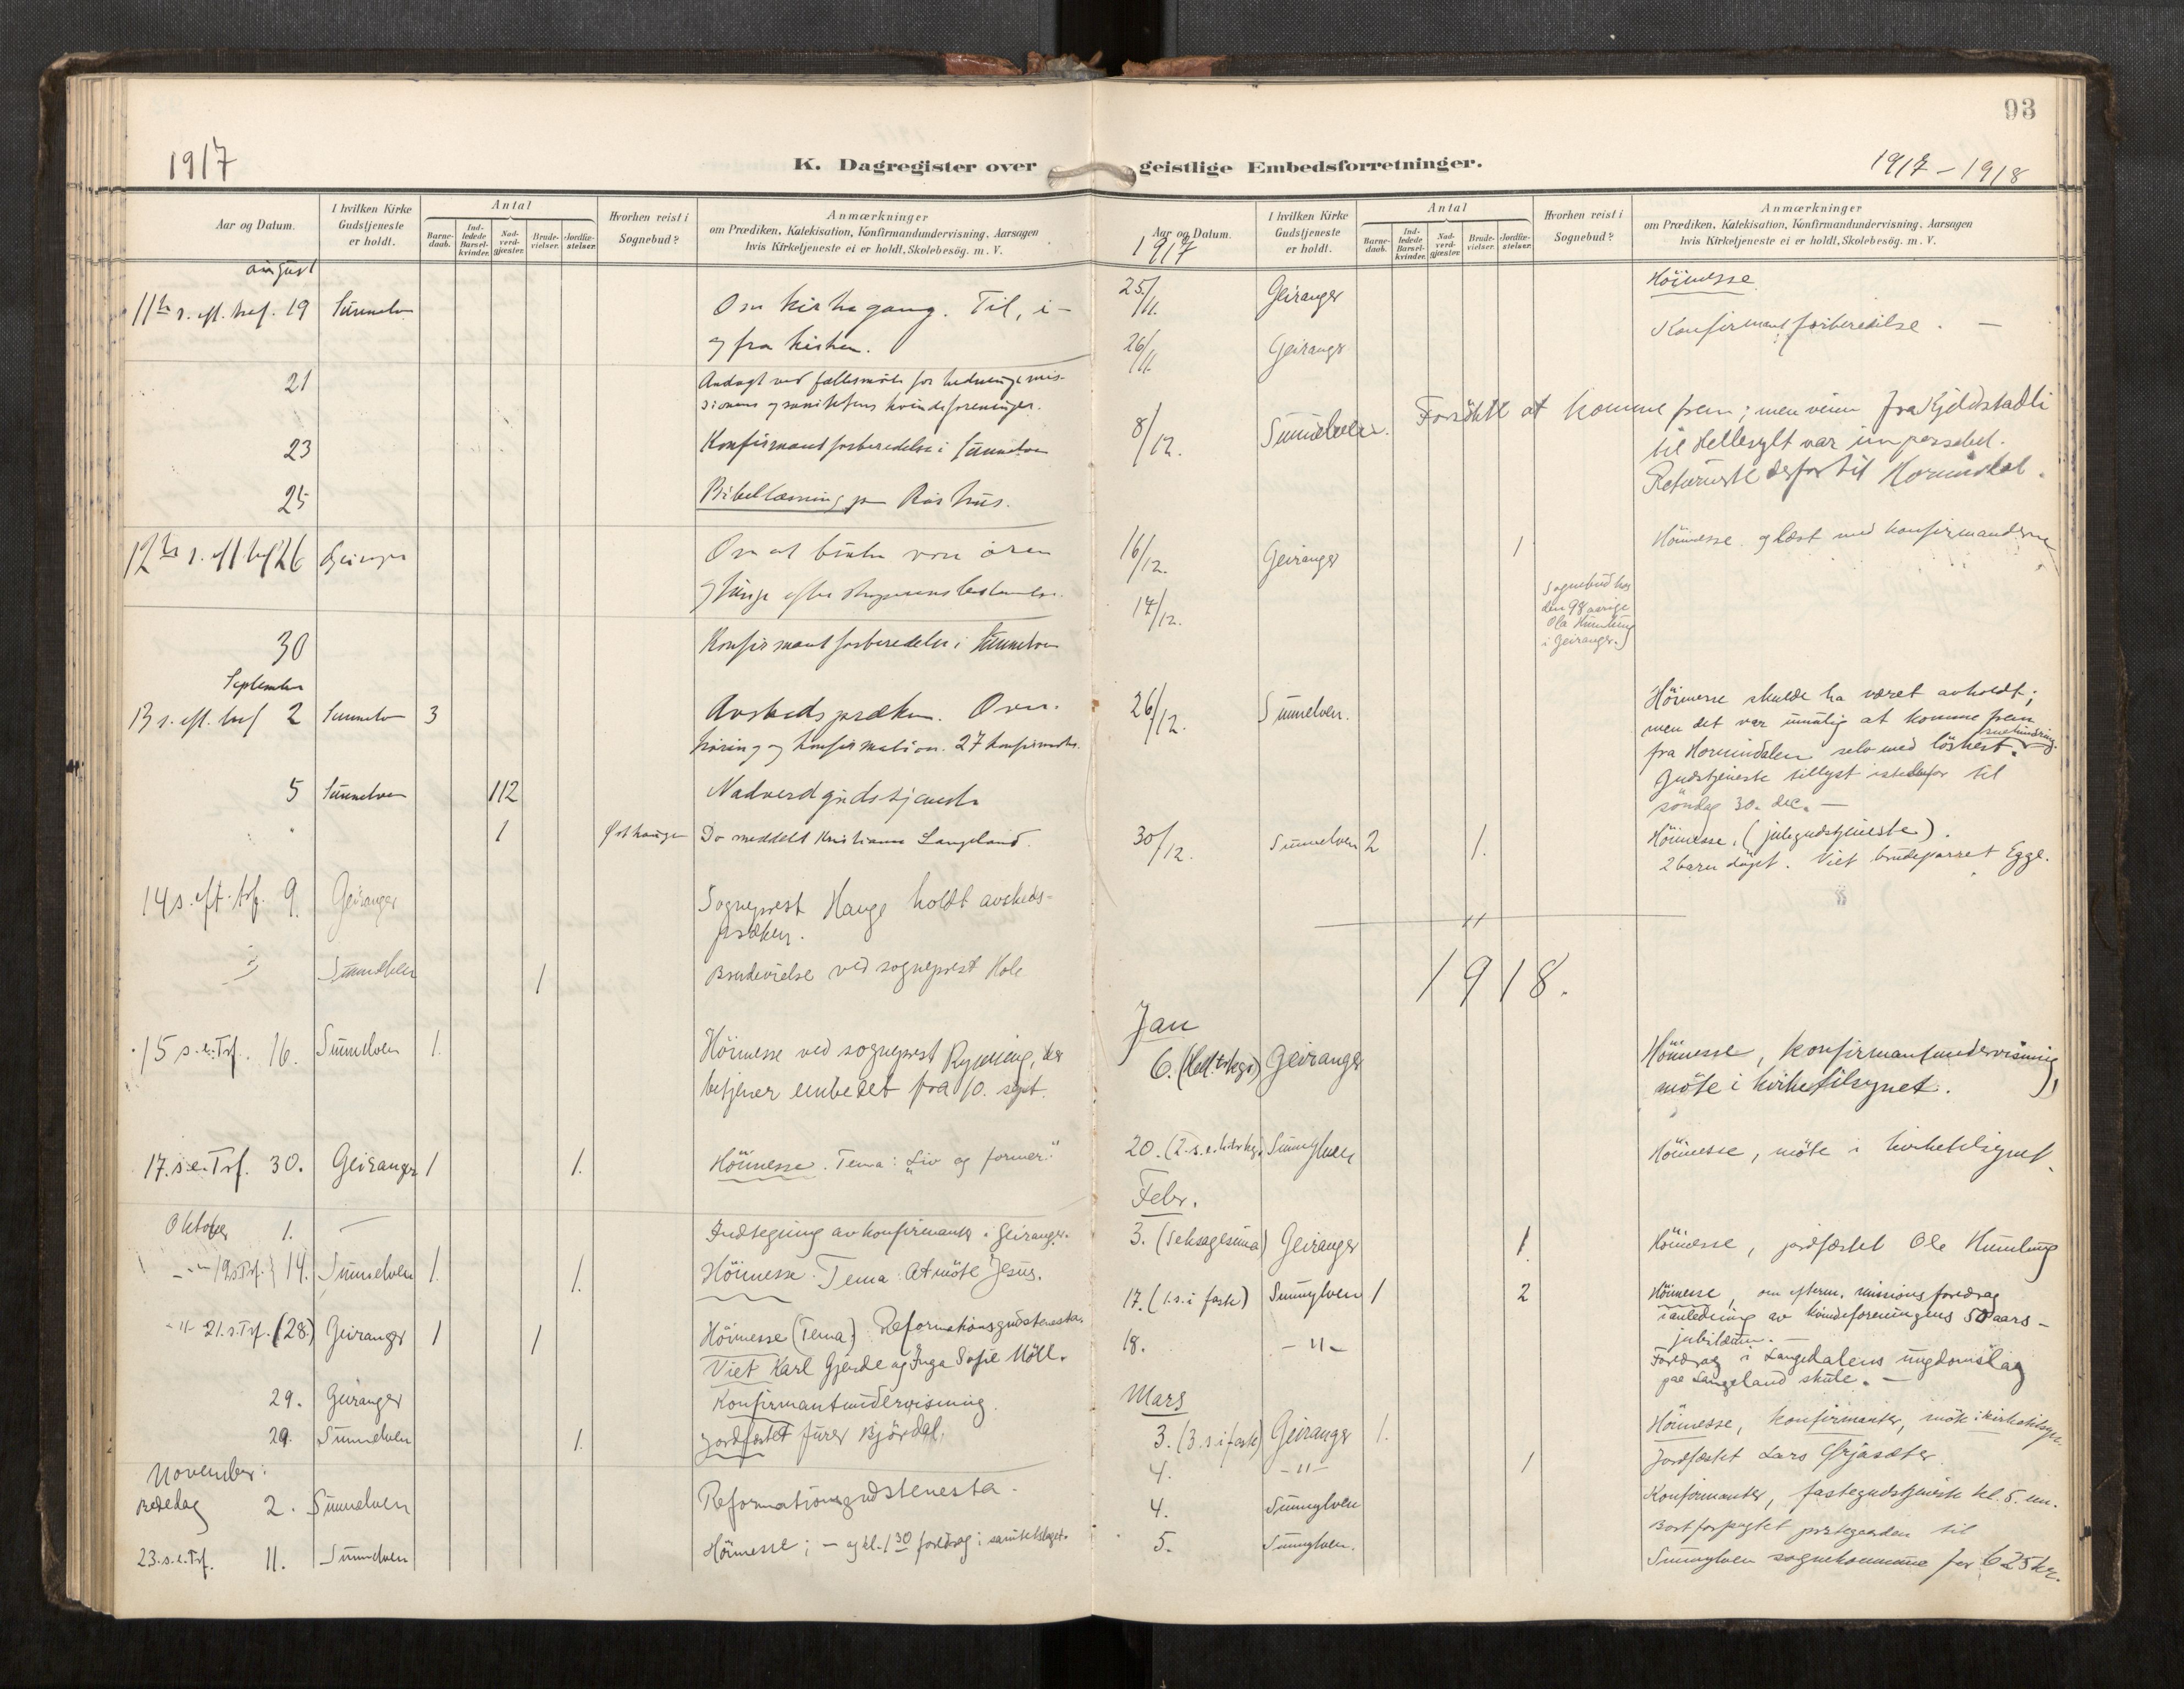 93
1917
K. Dagregister over geistlige Embedsforretninger.
1917-1918
Aar og Datum.
I hvilken Kirke Gudstjeneste er holdt.
Antal
Barne-daab.
Ind-ledede Barsel-kvinder.
Nad-verd-gjæster.
Brude-vielser.
Jordfæ-stelser.
Hvorhen reist i Sognebud?
Anmærkninger
om Prædiken, Katekisation, Konfirmandundervisning, Aarsagen
hvis Kirketjeneste ei er holdt, Skolebesög. m. V.
august
11te s. eft. tref. 19 Sunnelven Om kirkegang. Til, i -
og fra kirken.
21 Andagt ved fællesmøte for hedningemis-
sionens og kvindeforeninger.
23 Konfirmantforberedelse i Sunnelven
25 Bibellæsning paa
12te s. eft. tref 26 Geiranger Om at bruke vore ören
og tunge efter
30 Konfirmantforberedelse i Sunnelven
September
13 s. eft. tref 2 Sunnelven 3 Avskedspræken. Over-
höring og konfirmation. 27 konfirmanter.
5 Sunnelven 112 Nadverdgudstjeneste
" 1 Do meddelt Kristianne Langeland.
14 s. eft. trf. 9. Geiranger Sogneprest Hauge holdt avskeds-
præken.
Sunnelven 1 Brudevielse ved sogneprest Hole
15 s.e. Trf. 16. Sunnelven 1. Höimesse ved sogneprest Rynning, der
betjener embedet fra 10. sept.
17. s.e. Trf. 30. Geiranger 1 1. Höimesse. Tema: "Liv og former."
Oktober 1. — Indsegning av konfirmanter i Geiranger.
-"- 19 s. Trf. 14. Sunnelven 1. 1. Höimesse. Tema: At möte Jesus.
-"- 21. s. Trf. (28.) Geiranger 1 1 Höimesse (Tema): Reformationsgudstenesta.
Viet Karl Gjerde og Inga Sofie Möll.
29. Geiranger Konfirmantundervisning.
29. Sunnelven 1. Jordfæstet Björdal.
November:
Bededag 2. Sunnelven Reformationsgudstenesta.
23. s.e. Trf. 11. Sunnelven Höimesse; - og kl. 1 30 foredrag i sanitetslaget.
Aar og Datum.
1917
I hvilken Kirke Gudstjeneste er holdt.
Antal
Barne-daab.
Ind-ledede Barsel-kvinder.
Nad-verd-gjæster.
Brude-vielser.
Jordfæ-stelser.
Hvorhen reist i Sognebud?
Anmærkninger
om Prædiken, Katekisation, Konfirmandundervisning, Aarsagen
hvis Kirketjeneste ei er holdt, Skolebesög. m. V.
25/11. Geiranger Höimesse
26/11. Geiranger Konfirmantforberedelse. —
8/12. Sunnelven. Forsökte at komme frem; men veien fra Kjeldstadli
til Hellesylt var impassabel.
Returnerte derfor til Hornindal.
16/12. Geiranger 1 Höimesse og læst med konfirmanderne
17/12. Sognebud hos
den 98 aarige
Ola Humlung
i Geiranger.
26/12. Sunnelven. Höimesse skulde ha været avholdt;
men det var umulig at komme frem
fra Hornindalen selv med löshest.
Gudstjeneste tillyst istedenfor til
söndag 30. dec. —
30/12. Sunnelven 2 1. Höimesse. (julegudstjeneste).
2 barn döpt. Viet brudeparret Egge.
"
1918.
Jan
6. Geiranger Höimesse, konfirmantundervisning,
möte i kirketilsynet.
20. Sunnylven Höimesse, möte i kirketilsynet.
Febr.
3. (Seksagesima) Geiranger 1. Höimesse, jordfæstet Ole Humlung
17. (1. s. i faste) Sunnylven 1 2 Höimesse, om efterm. missionsforedrag
i anledning av kvindeforeningens 50 aars-
jubilæum. —
18. -"- Foredrag i Langedalens ungdomslag
paa Langeland skule. —
Mars
3. (3. s. i faste) Geiranger 1. Höimesse, konfirmanter, möte i kirketilsyn.
4. -"- 1 Jordfæstet Lars Grjasæter.
4. Sunnylven Konfirmanter, fastegudstjeneste kl. 5. em.
5. Sunnylven. Bortforpagtet prestegaarden til
Sunnylven sognekommune for 625 kr.